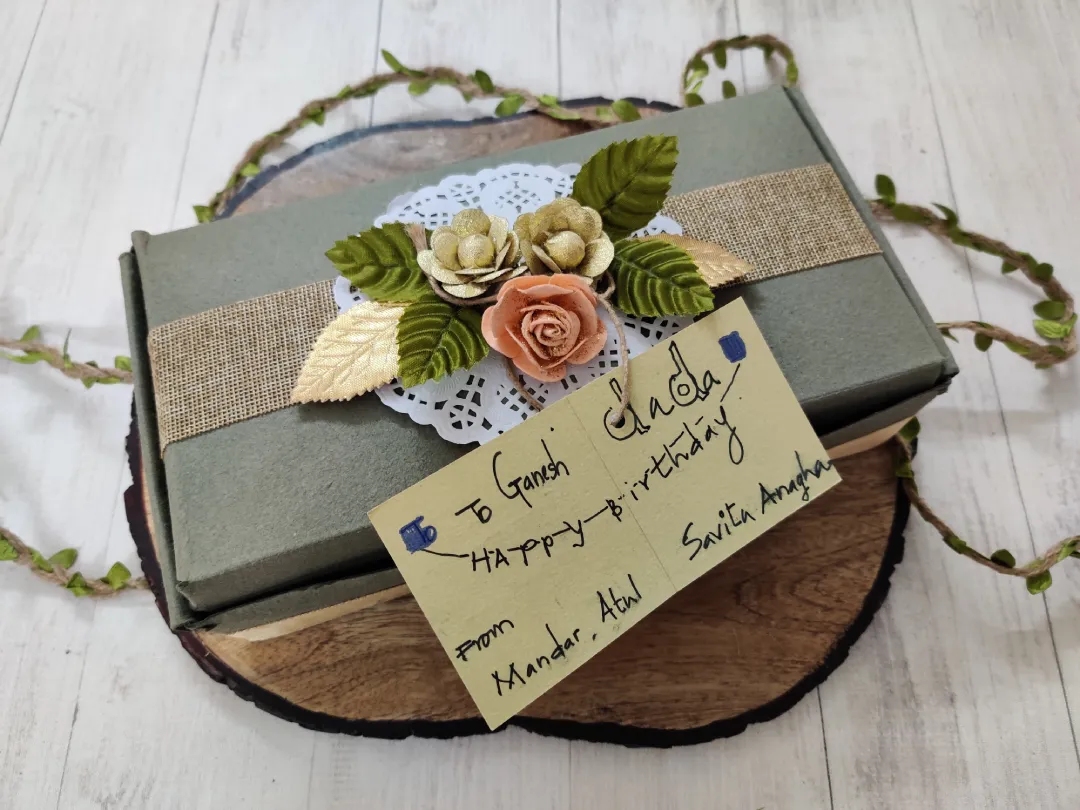 To Ganesh dada
HAppy Birthday
From
Mandar, Atul Savita Anagha